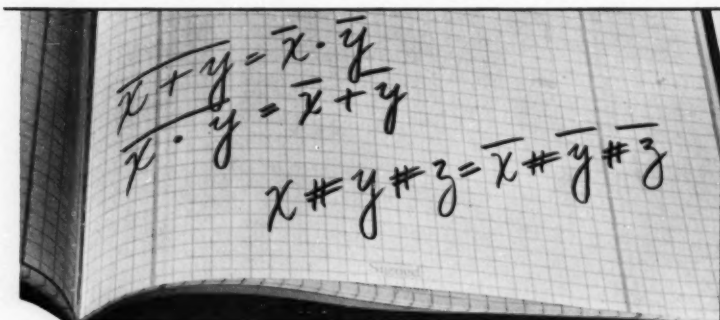 x̅ ̅+̅ ̅y̅ = x̅ · y̅
x̅ ̅·̅ ̅y̅ = x̅ + y̅
x # y # z = x̅ # y̅ # z̅